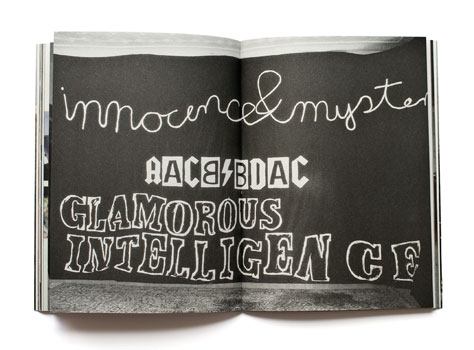 innocence&myster
AACB⚡BDAC
GLAMOROUS
INTELLIGENCE